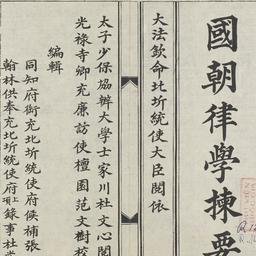 國朝律學揀要
大法欽命北圻統使大臣閱依
太子少保協辦大學士家川杜文心閱
光祿寺卿充廉訪使檀園范文樹校
編輯
同知府銜充北圻統使府候補張
翰林供奉充北圻統使府
錄事杜